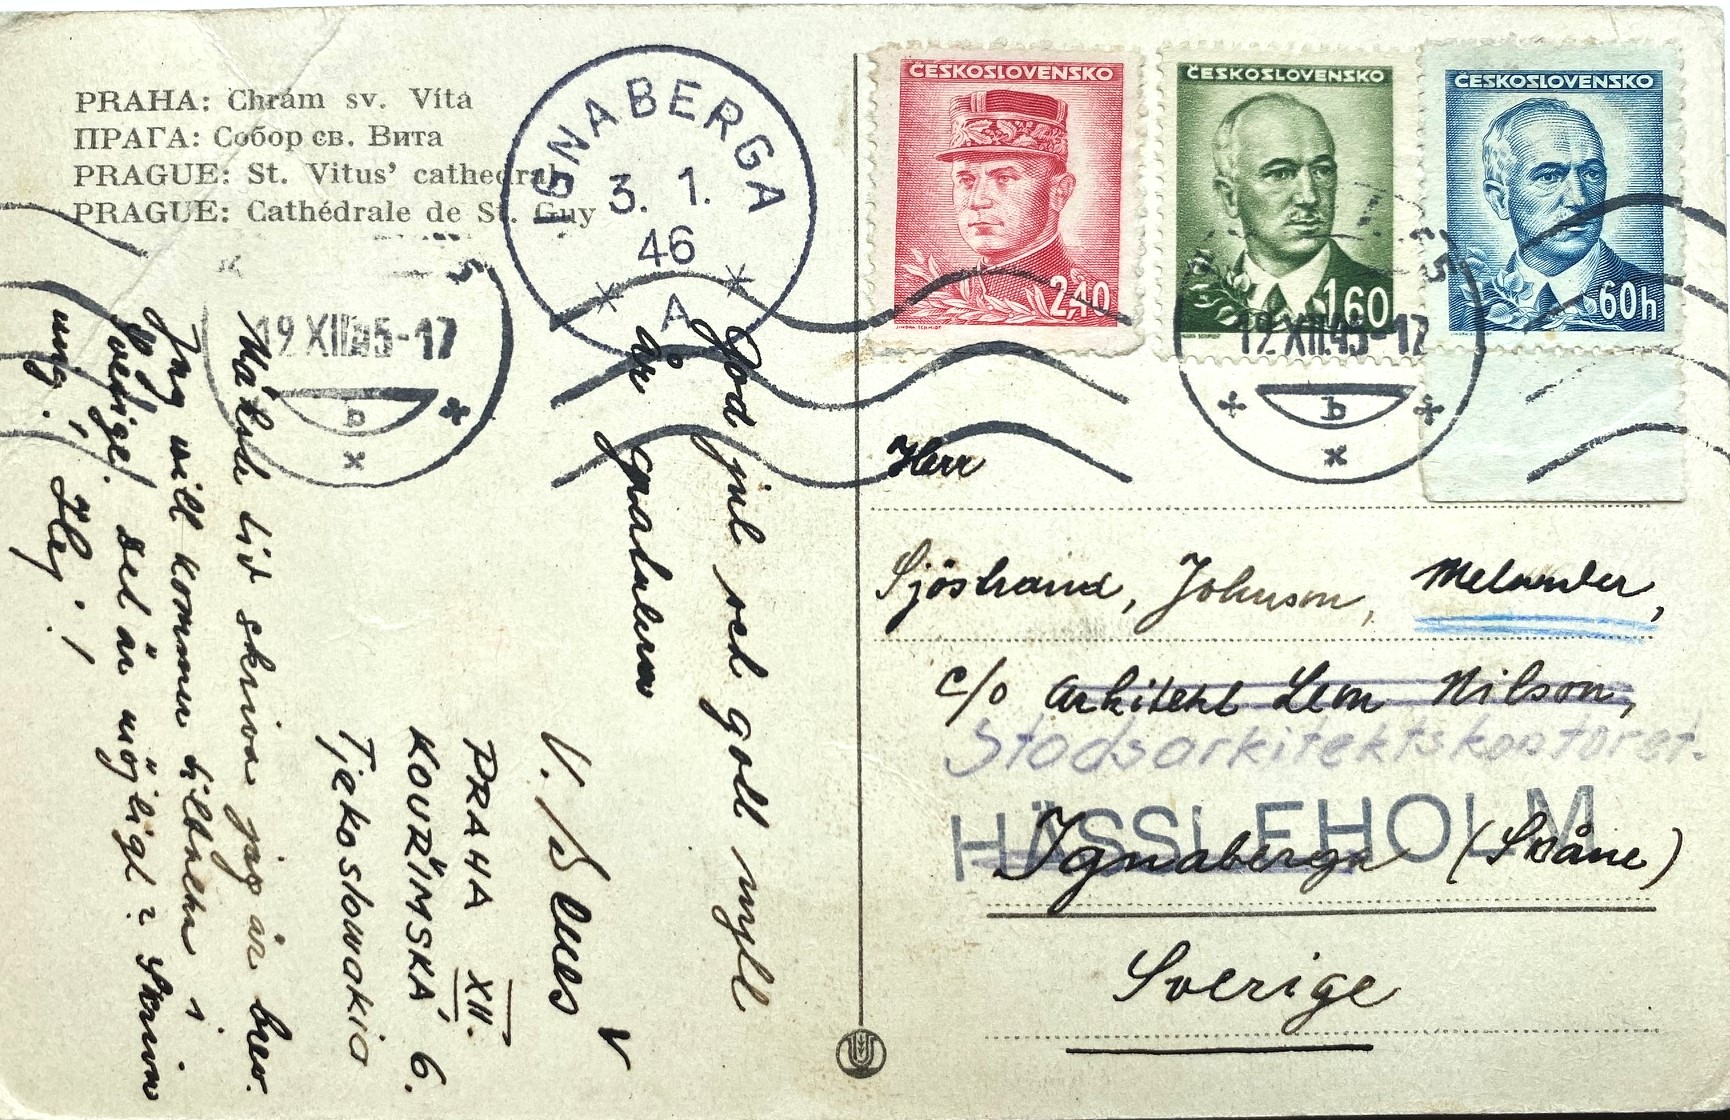 PRAHA: Chrám sv. Víta
ПРАГА: Собор св. Вита
PRAGUE: St. Vitus' cathedral
PRAGUE: Cathédrale de St. Guy
IGNABERGA
3. 1.
46
A
ČESKOSLOVENSKO
2,40
ČESKOSLOVENSKO
1,60
ČESKOSLOVENSKO
60h
12.XII.45-17
b
12.XII.45-17
b
God jul och gott nytt
år gratulera
V.
PRAHA XII.
KOUŘIMSKÁ 6.
Tjekoslowakia
tid skriva jag är brev.
Jag vill kommer tillbaka i
Sverige! det är möjligt? Skriva
mig! Hej!
Herr
Sjöstrand, Johnson, Melander,
c/o Arkitekt Nilson,
Stadsarkitektskontoret.
HÄSSLEHOLM
Ignaberga (Skåne)
Sverige